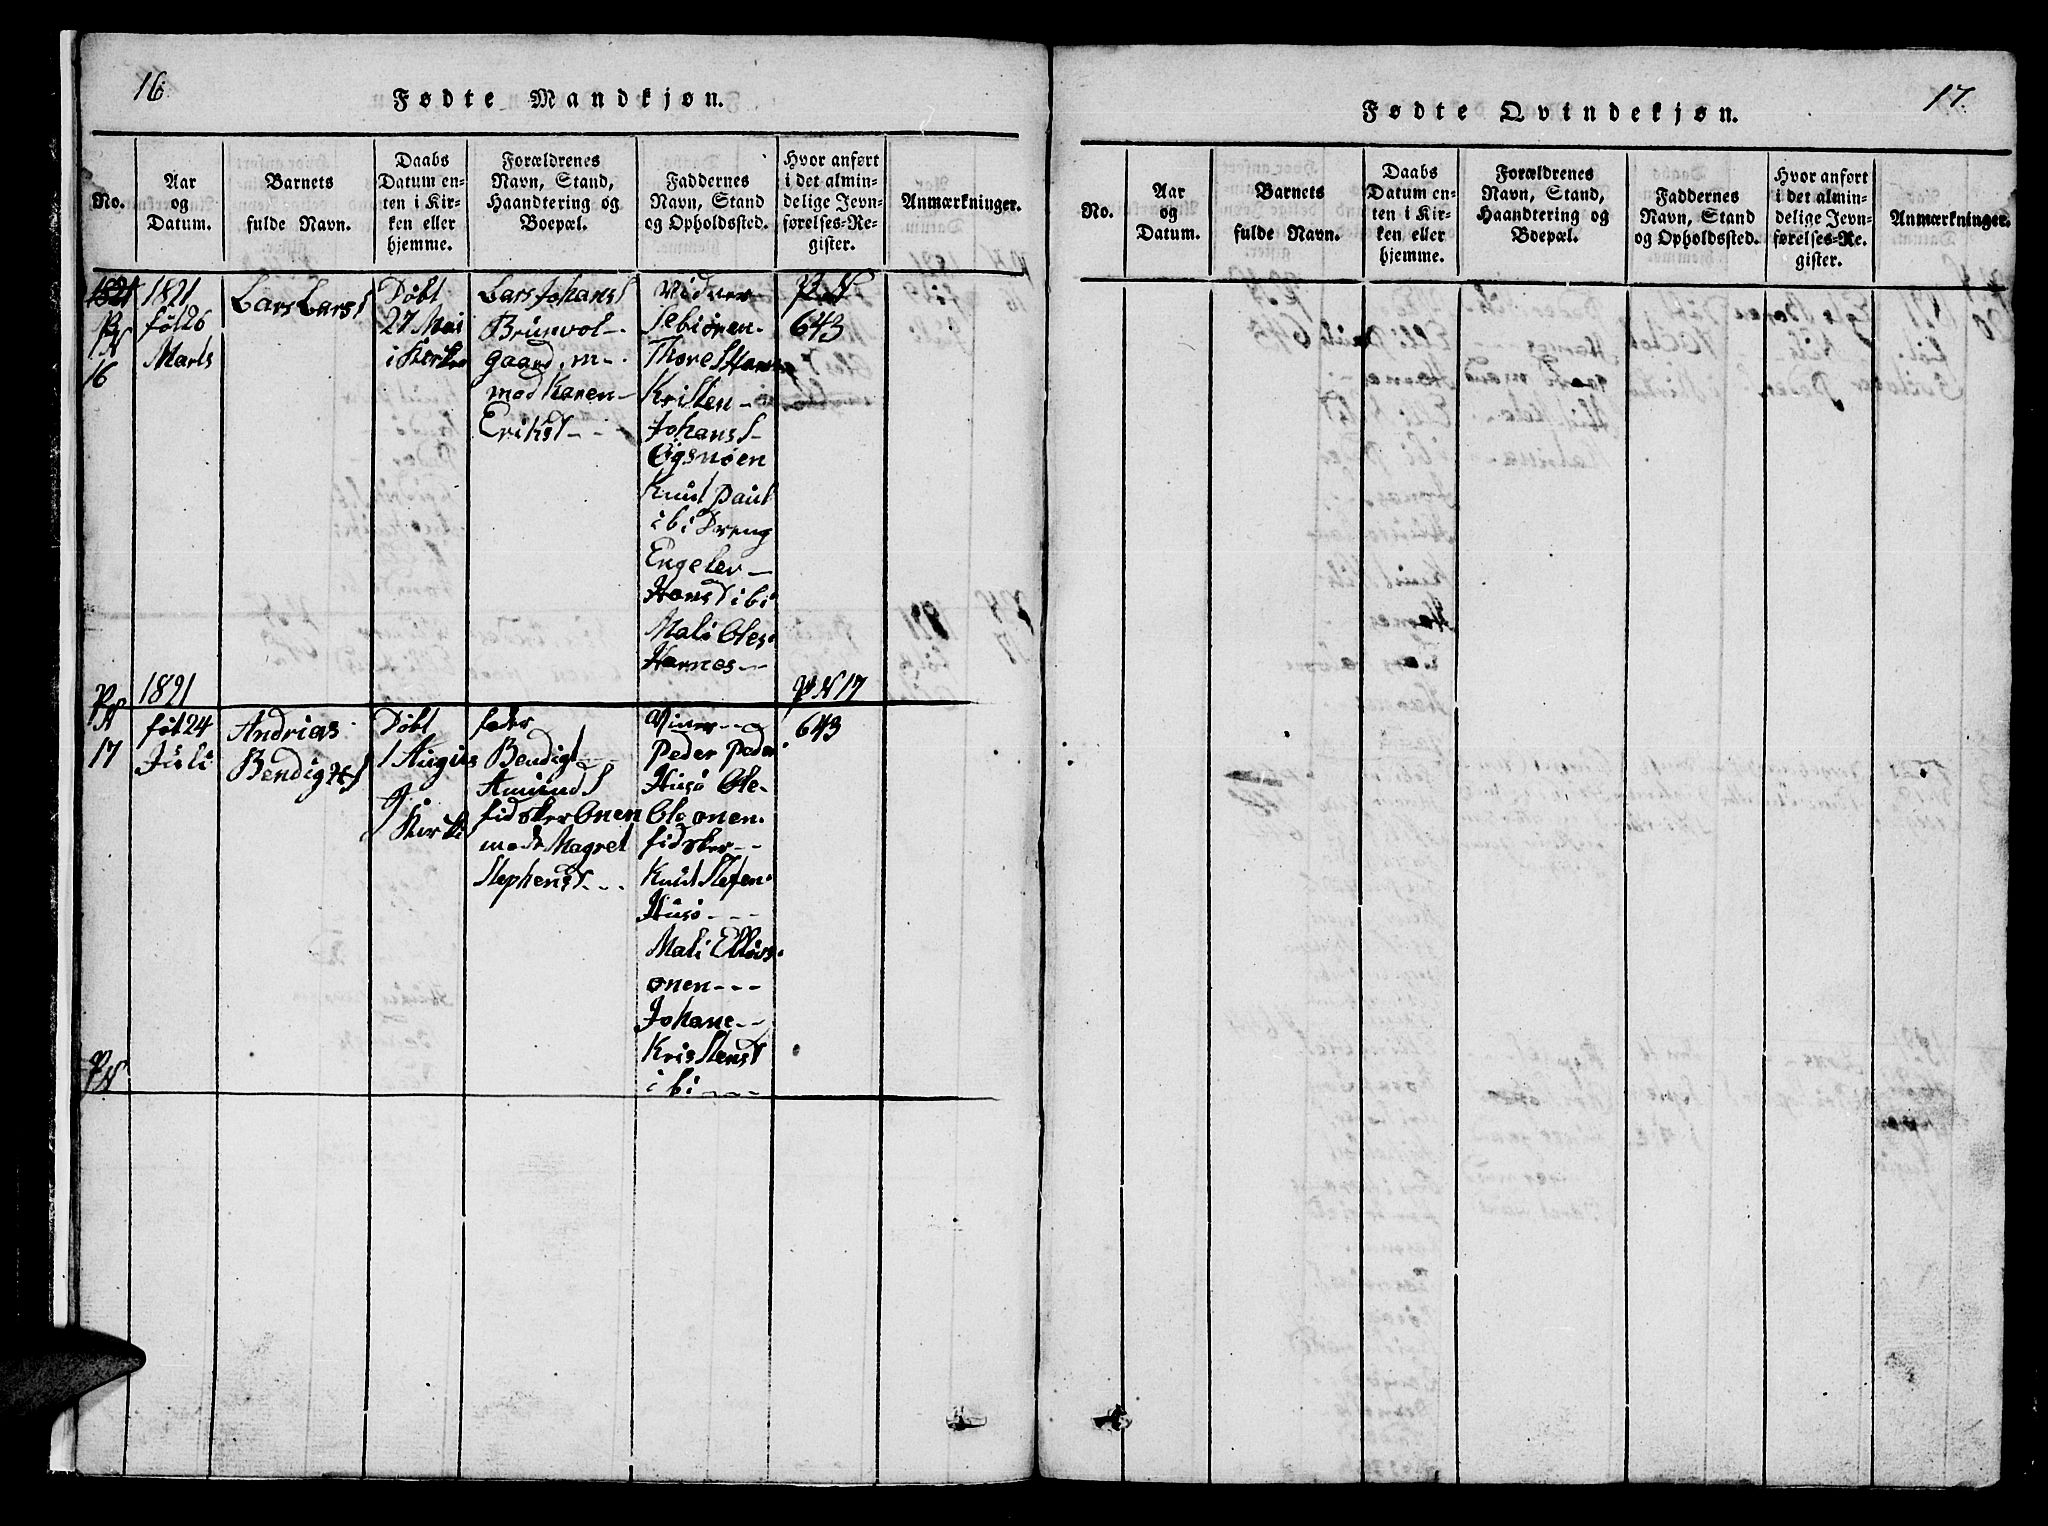 16.
Fødte Mandkjøn.
No.
Aar
og
Datum.
Barnets
fulde Navn.
Daabs
Datum en-
ten i Kir-
ken eller
hjemme.
Forældrenes
Navn, Stand,
Haandtering og
Boepæl.
Faddernes
Navn, Stand
og Opholdssted.
Hvor anført
i det almin-
delige Jevn-
førelses-Re-
gister.
Anmærkninger.
1821
PN
16
1821
føl 26
Marts
Lars Larsl
Døbt
27 Mai
i Kirke
Lars Johansl
Brünvol-
gaard. m-
mod Karen-
Eriksl---
Vidner
Thore
Kristen-
Johansl-
Øgsnøen
Knud Paul
ibi Dreng
Engeler-
Hansd ibi
Mali Oles.
Harnes--
PN
643
PN
17
1821
føl 24
Juli
Andrias
Døbt
1 Augus
J
Kirke
fader
Bendigt--
Amunds
fidsker Onen
mod Magret
Stephensd---
Peder Peder
Husø Ole-
Ole onen.
fidsker--
Knud Stefen.
Husø---
Mali Ellevs.
onen---
Johane--
Kristensd
ibi----
PN 17
643
PN
17.
Fødte Qvindekjøn.
No.
Aar
og
Datum.
Barnets
fulde Navn.
Daabs
Datum en-
ten i Kir-
ken eller
hjemme.
Forældrenes
Navn, Stand,
Haandtering og
Boepæl.
Faddernes
Navn, Stand
og Opholdssted.
Hvor anført
i det almin-
delige Jevn-
førelses-Re-
gister.
Anmærkninger.